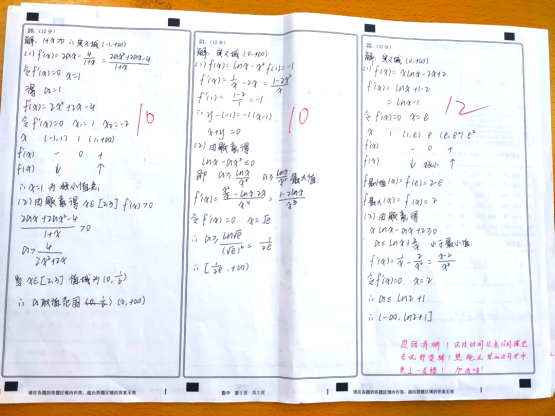 20. (12分)
解: 1+x>0 ∴ 定义域 (-1,+∞)
(1) f'(x)=2ax-4/(1+x)=(2ax²+2ax-4)/(1+x)
令f'(x)=0 x=1
得 a=1
f'(x)=2x²+2x-4
令f'(x)=0 x₁=1 x₂=-2
x (-1,1) 1 (1,+∞)
f'(x) - 0 +
f(x) ↓ ↑
∴ x=1 为极小值点
(2) 由题意得 x∈[2,3] f'(x)>0
(2ax+2ax²-4)/(1+x) >0
a>4/(2x²+2x)
当 x∈[2,3] 值域为
∴ a取值范围
10
21. (12分)
解: 定义域 (0,+∞)
(1) f(x)=lnx-x² f(1)=-1
f'(x)=1/x-2x=(1-2x²)/x
f'(1)=(1-2)/1=-1
∴ y-(-1)=-1(x-1)
x+y=0
(2) 由题意得
lnx-ax²≤0
即 a≥lnx/x² a≥lnx/x² 最大值
令f'(x)=0 x=√e
∴ a≥ln√e/(√e)²=1/2e
∴ [1/2e,+∞)
10
22. (12分)
解: 定义域 (0,+∞)
(1) f(x)=xlnx-2x+2
f'(x)=lnx+1-2
=lnx-1
令f'(x)=0 x=e
x 1 (1,e) e (e,e²) e²
f'(x) - 0 +
f(x) ↓ 极小 ↑
f最小值(x)=f(e)=2-e
f最大(x)=f(e²)=2
(2) 由题意得
xlnx-ax+2≥0
a≤lnx+2/x 小于最小值
f'(x)=1/x-2/x²=(x-2)/x²
令f'(x)=0 x=2
∴ a≤ln2+1
∴ (-∞,ln2+1]
12
请在各题的答题区域内作答，超出答题区域的答案无效
数学 第2页 共2页
请在各题的答题区域内作答，超出答题区域的答案无效